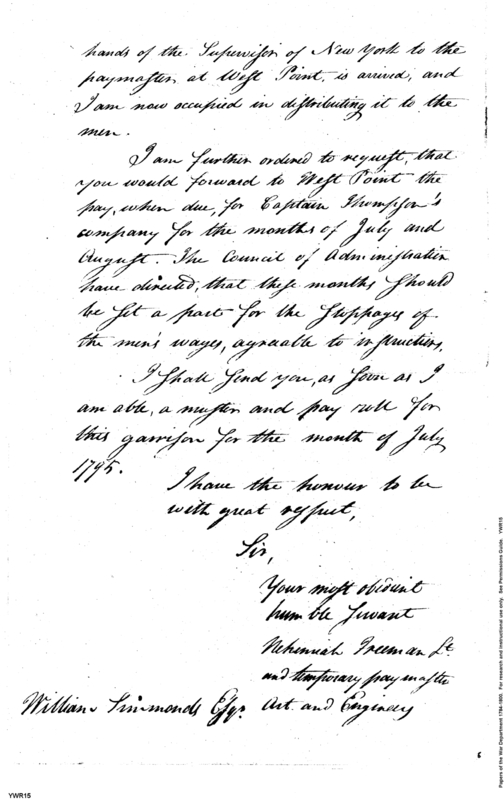 hands of the Supervisor of New York to the
paymaster, at West Point, is arrived, and
I am now occupied in distributing it to the
men.
I am further ordered to request, that
you would forward to West Point the
pay, when due, for Captain Thompson's
company for the months of July and
August. The Council of Administration
have directed, that these months should
be set a part for the stoppages of
the men's wages, agreable to instructions.
I shall send you, as soon as I
am able, a muster and pay roll for
this garrison for the month of July
1795.
I have the honour to be
with great respect,
Sir,
Your most obedient
humble servant
Nehemiah Freeman Lt.
and temporary paymaster
William Simmonds Esqr. Art. and Engineers
6
YWR15
Papers of the War Department 1784-1800. For research and instructional use only. See Permissions Guide. YWR15